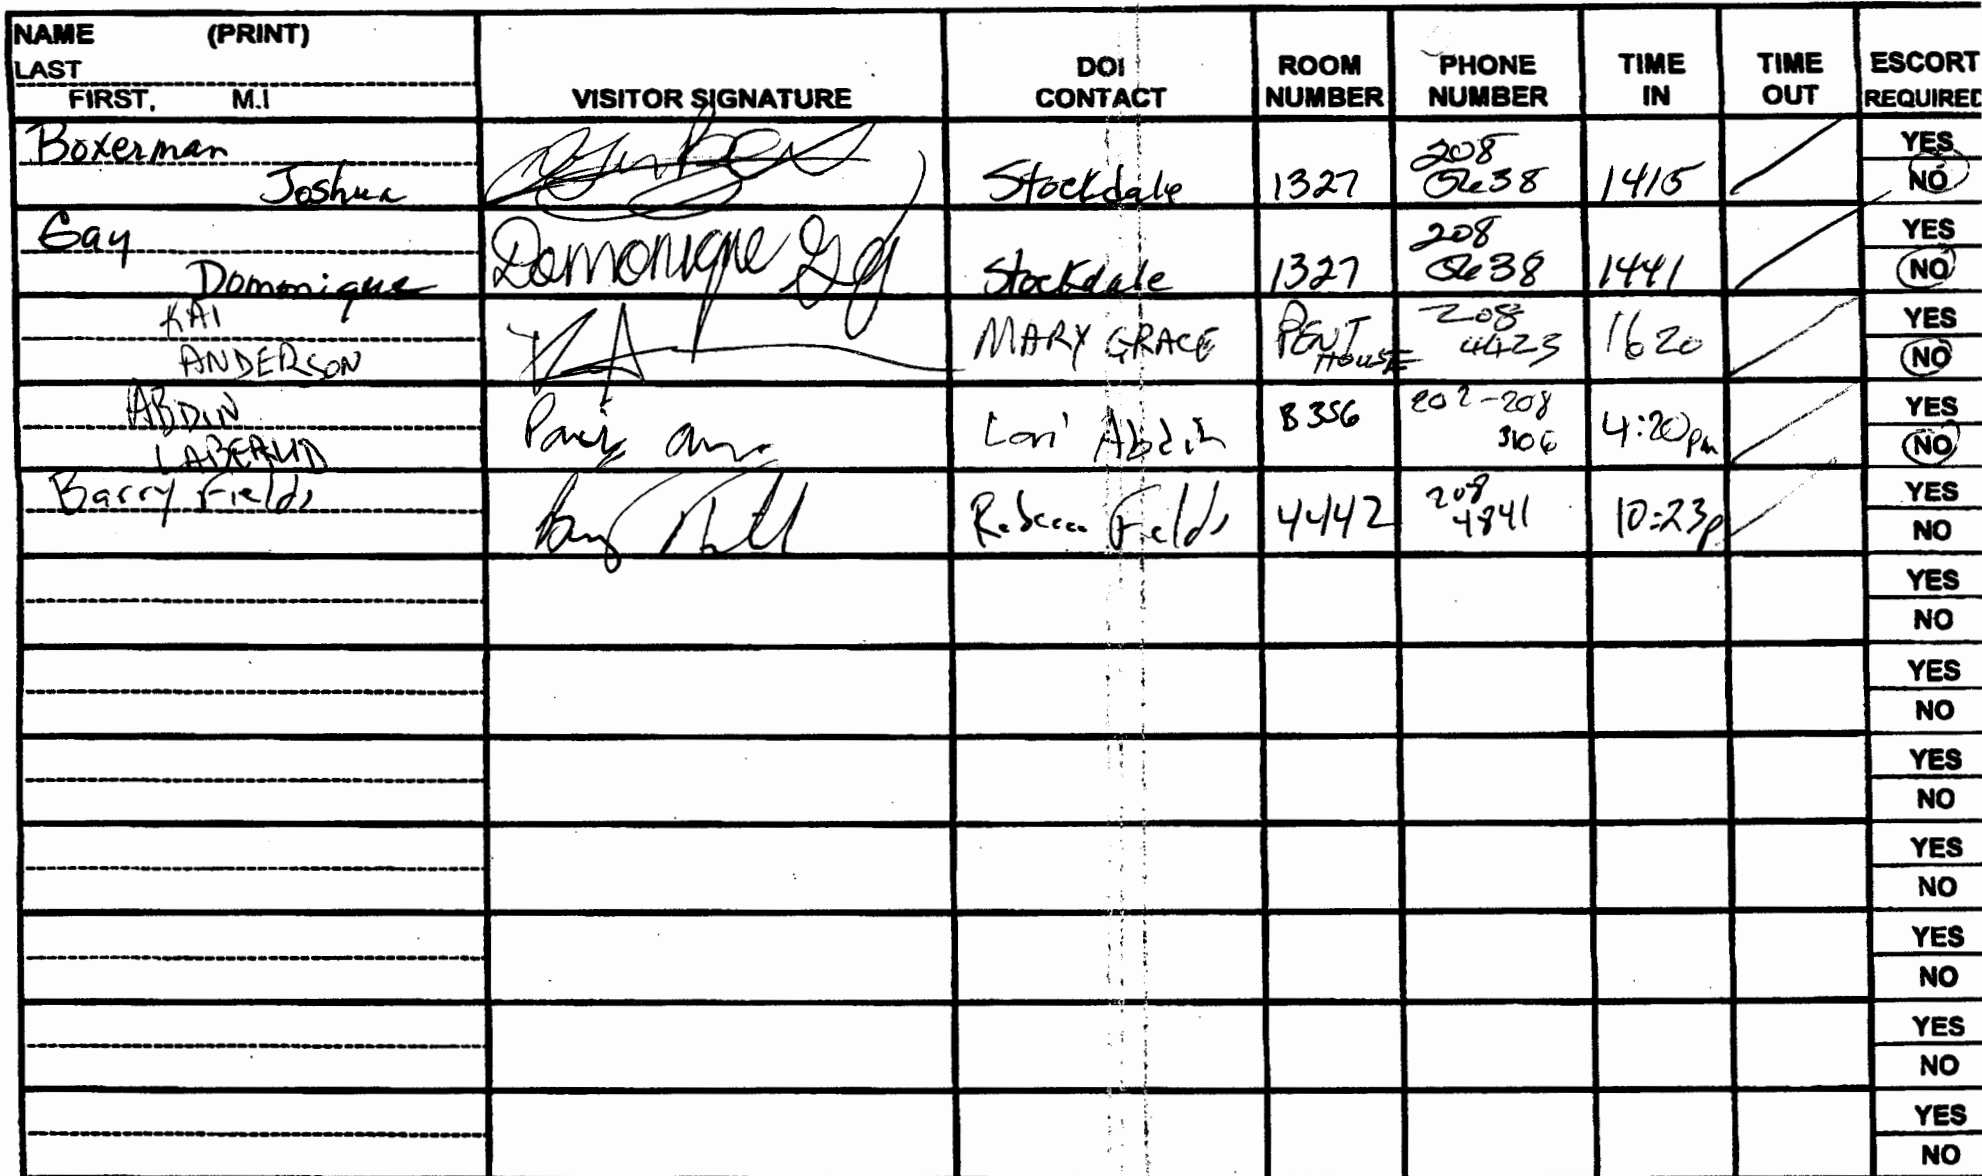 NAME (PRINT)
LAST
FIRST, M.I
VISITOR SIGNATURE
DOI
CONTACT
ROOM
NUMBER
PHONE
NUMBER
TIME
IN
TIME
OUT
ESCORT
REQUIRED
Boxerman
Joshua
Stockdale
1327
208
1415
YES
NO
Gay
Domonique
Domonique Gay
Stockdale
1327
208
1441
YES
NO
KAI
ANDERSON
KA
MARY GRACE
PENT
HOUSE
208
4423
1620
YES
NO
ABDIN
Lori Abdin
B356
202-208
3106
4:20pm
YES
NO
Barry Fields
Rebecca Fields
4442
208
4841
10:23p
YES
NO
YES
NO
YES
NO
YES
NO
YES
NO
YES
NO
YES
NO
YES
NO